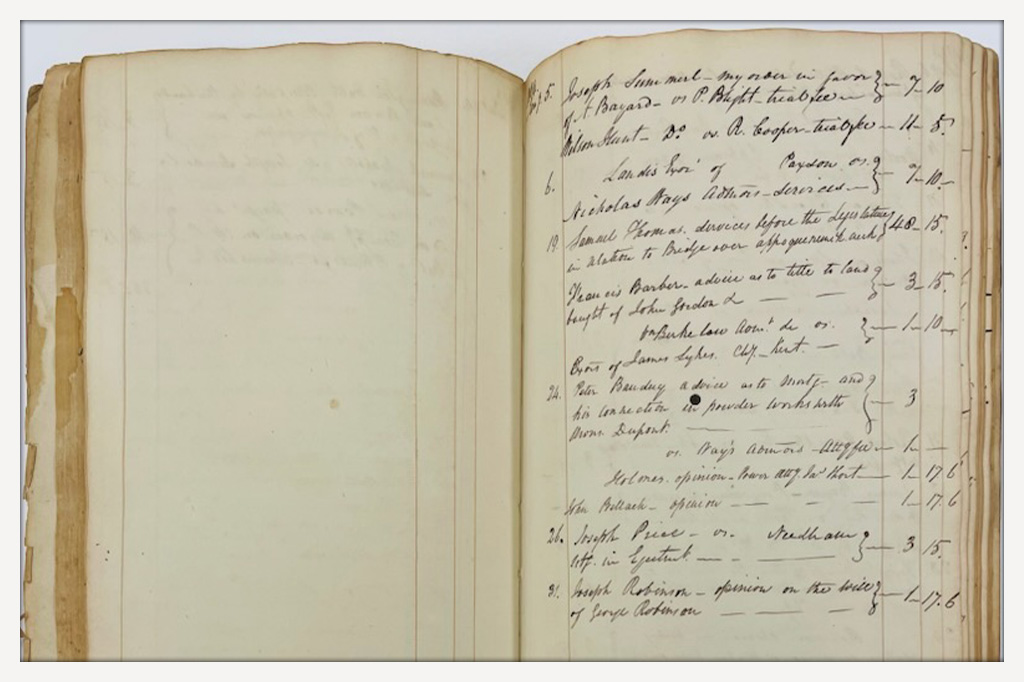 5. Joseph Summerl - my order in favor
of A Bayard - vs P. Bught - trial fee - 7 - 10
Wilson Hunt - Do vs. R. Cooper - trial fee - 11 - 5.
6. Landis Exor of Paxson vs.
Nicholas Ways Admors - Services - 7 - 10 -
19. Samuel Thomas. services before the Legislature
in relation to Bridge over appoquenimink creek 48 - 15.
Francis Barber - advice as to title to land
bought of John Gordon & - 3 - 15.
Admr. de vs.
Exors of James Sykes. - Kent. - 1 - 10 -
24. Peter Bauduy advice as to Mortg - and
his connection in powder works with
Mons. Dupont. - 3
vs. Way's Admors - Atty fee - 1 -
Holmes. opinion - Power Atty. - 1 - 17.6
John - opinion - 1 - 17.6
26. Joseph Price - vs. Needham
in Ejectmt. - 3 15.
31. Joseph Robinson - opinion on the will
of George Robinson - 1 - 17.6